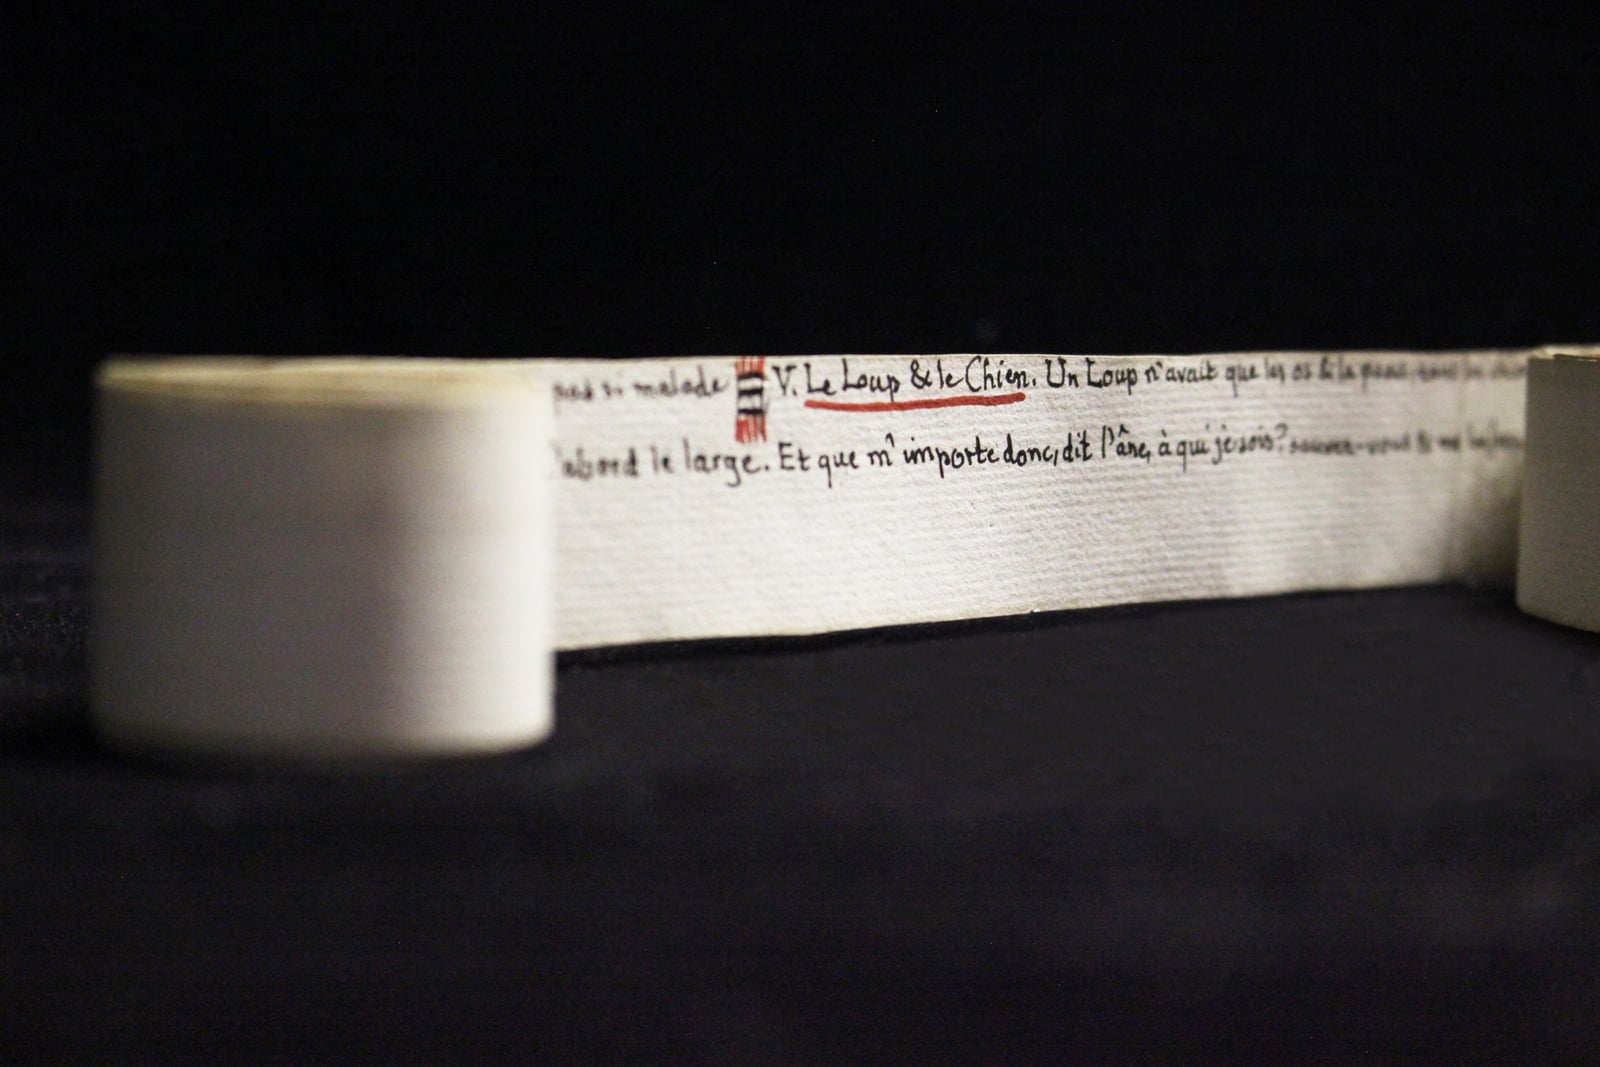 pas si malade V. Le Loup & le Chien. Un Loup n'avait que les os & la peau
l'abord le large. Et que m'importe donc, dit l'âne, à qui je sois? sauvez-vous & me laissez